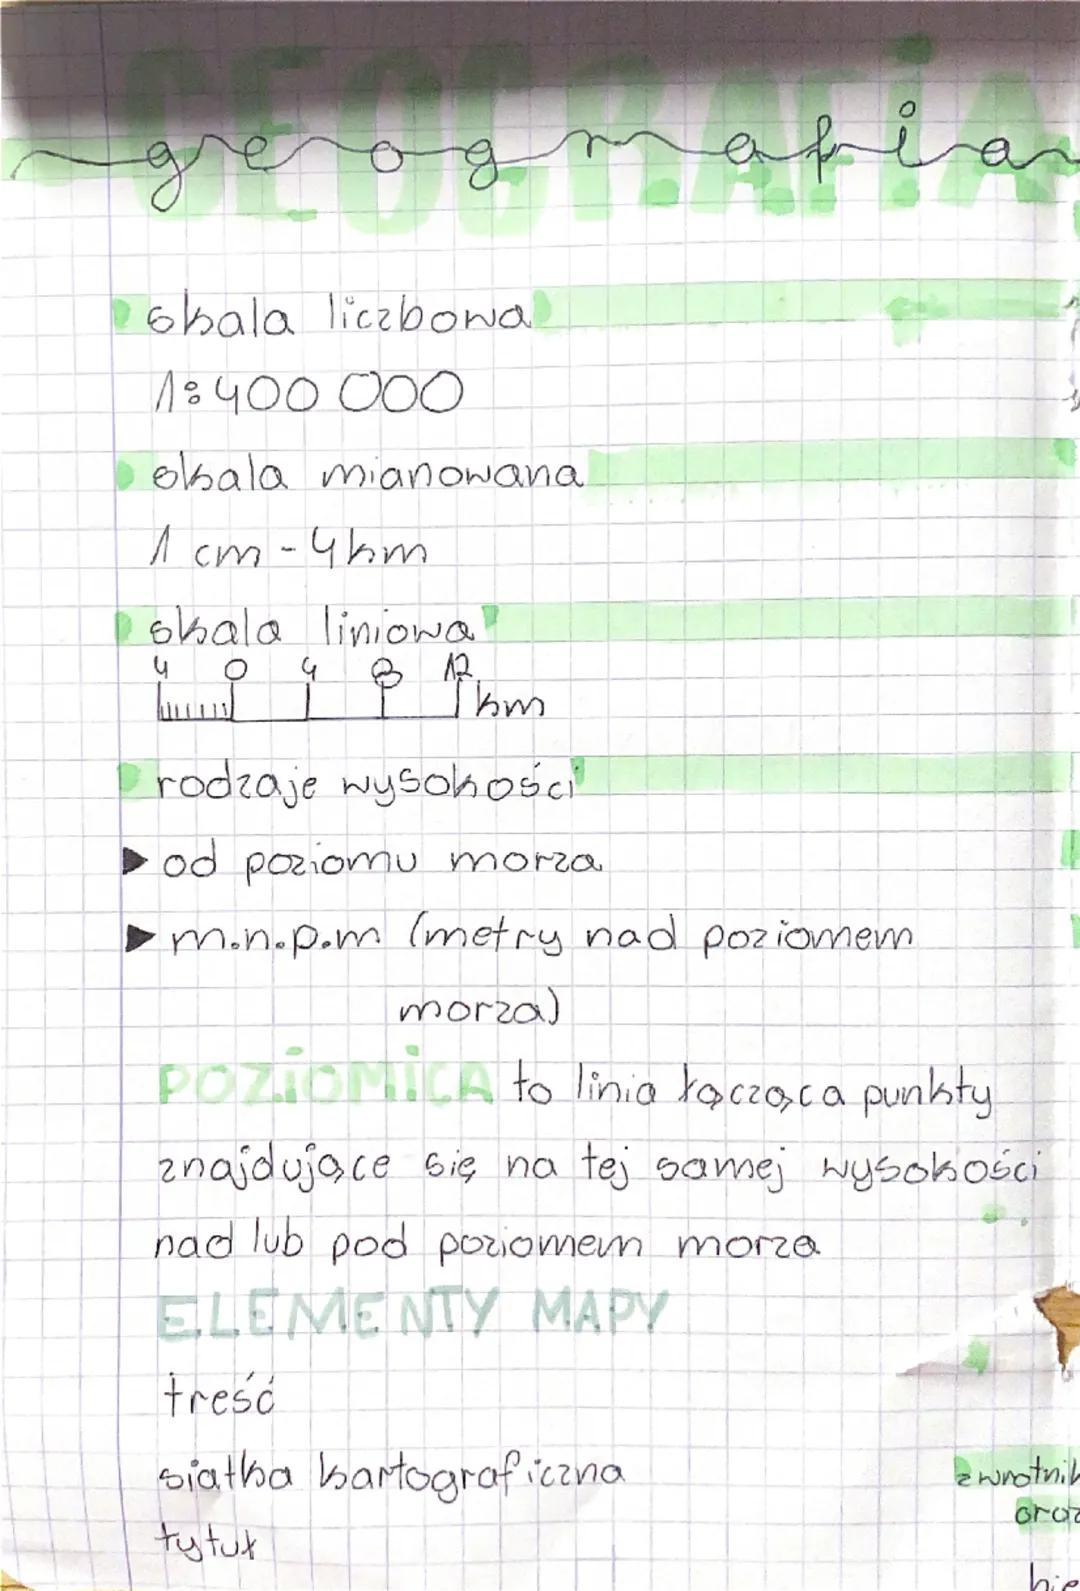 GEOGRAFIA
geografia
skala liczbowa
1:400 000
skala mianowana
1 cm - 4km
skala liniowa
4 0 4 8 12
km
rodzaje wysokości
od poziomu morza
m.n.p.m (metry nad poziomem
morza)
POZIOMICA to linia łącząca punkty
znajdujące się na tej samej wysokości
nad lub pod poziomem morza
ELEMENTY MAPY
treść
siatka kartograficzna
tytuł
zwrotnik
oraz